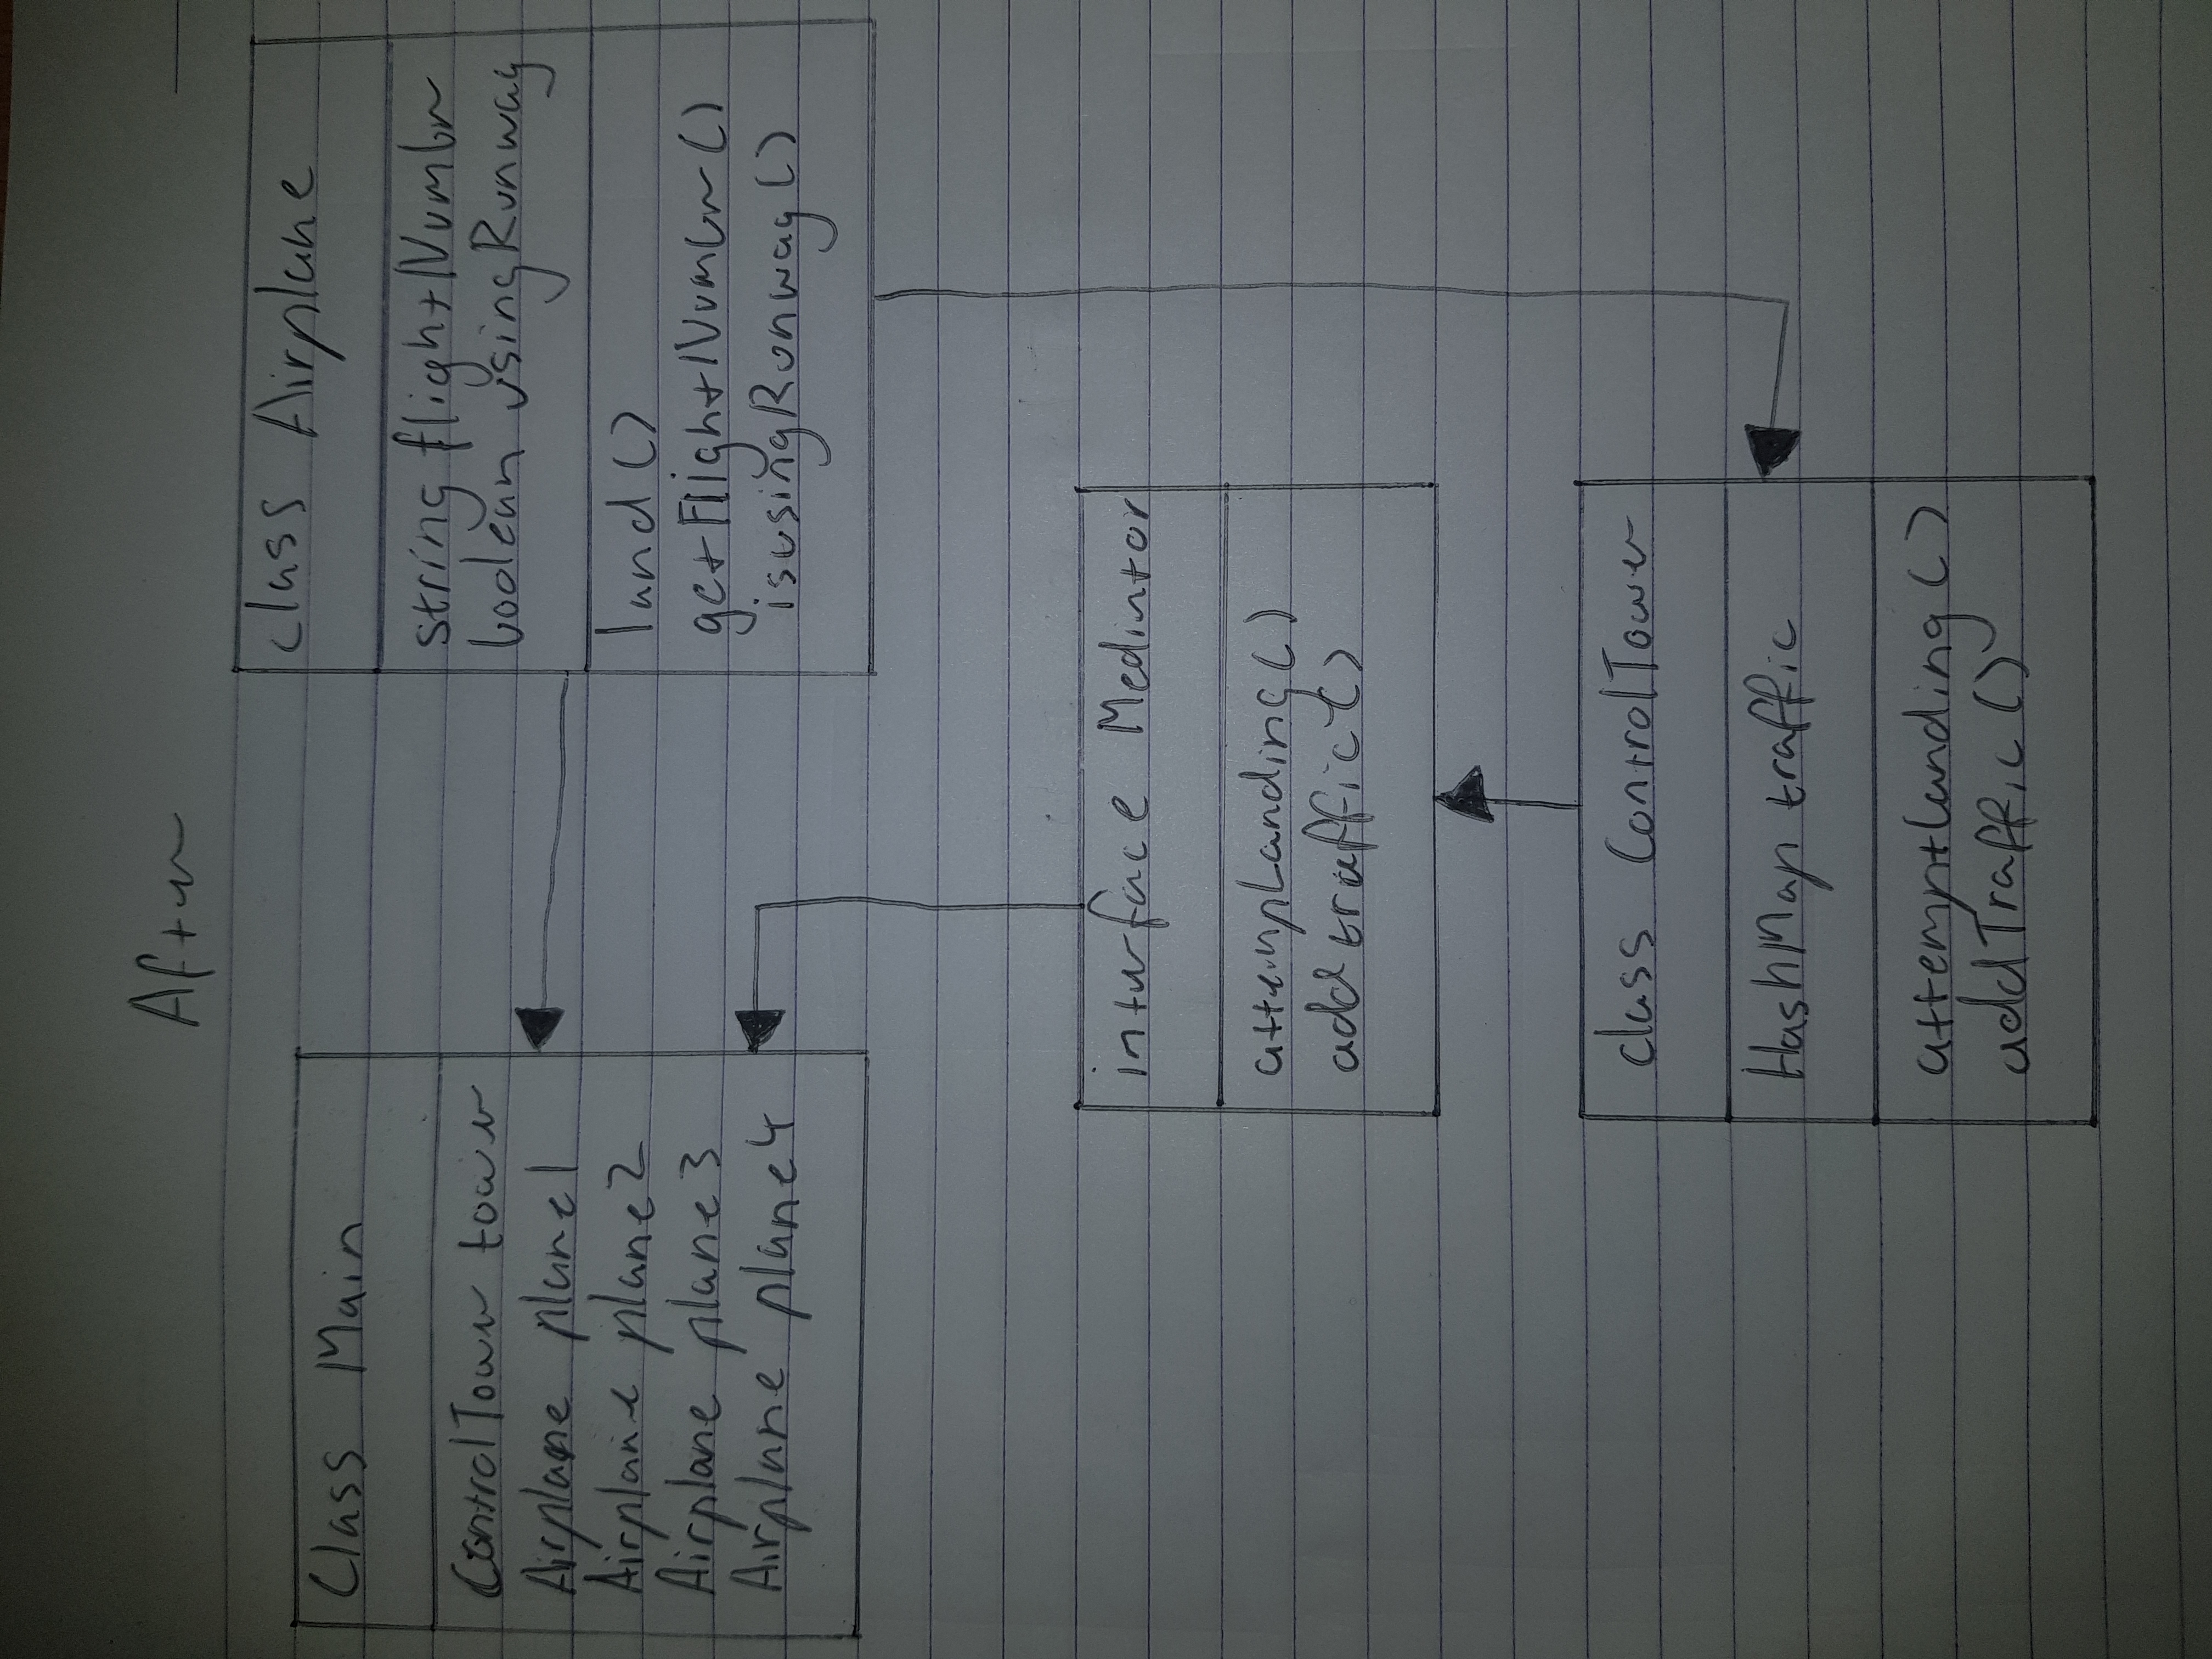 After
Class Main
ControlTower tower
Airplane plane1
Airplane plane2
Airplane plane3
Airplane plane4
class Airplane
string flightNumber
boolean usingRunway
land()
getFlightNumber()
isusingRunway()
interface Mediator
attempLanding()
addtraffic()
class ControlTower
HashMap traffic
attemptlanding()
addTraffic()